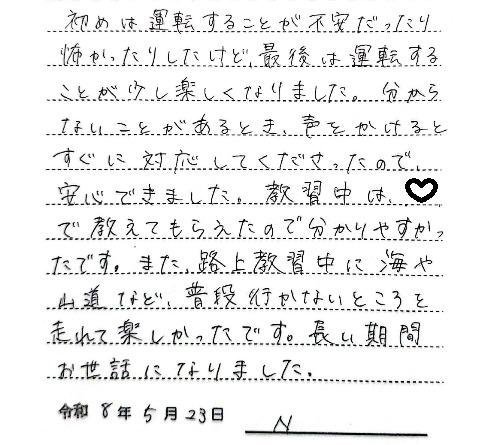 初めは運転することが不安だったり
怖かったりしたけど、最後は運転する
ことが少し楽しくなりました。分から
ないことがあるとき、声をかけると
すぐに対応してくださったので、
安心できました。教習中は、♡
で教えてもらえたので分かりやすかっ
たです。また、路上教習中に海や
山道など、普段行かないところを
走れて楽しかったです。長い期間
お世話になりました。
令和8年5月23日 N